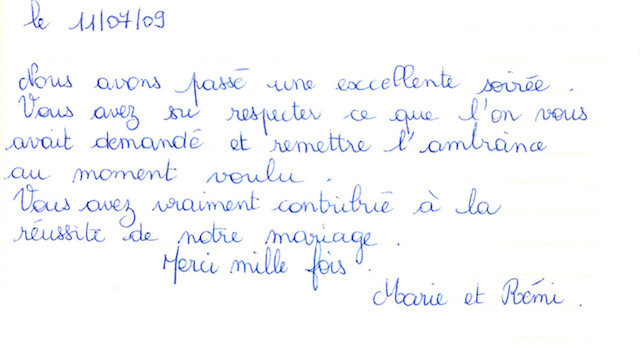 le 11/07/09
Nous avons passé une excellente soirée.
Vous avez su respecter ce que l'on vous
avait demandé et remettre l'ambiance
au moment voulu.
Vous avez vraiment contribué à la
réussite de notre mariage.
Merci mille fois.
Marie et Rémi.